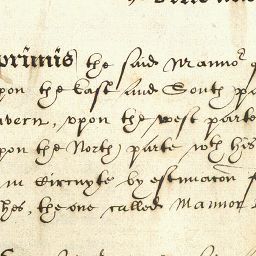 primis the said Mannor
pon the East and South pa
avern, vpon the west parte
pon the North parte wth his
in Circuyte by estimacon f
hes, the one called Mannor